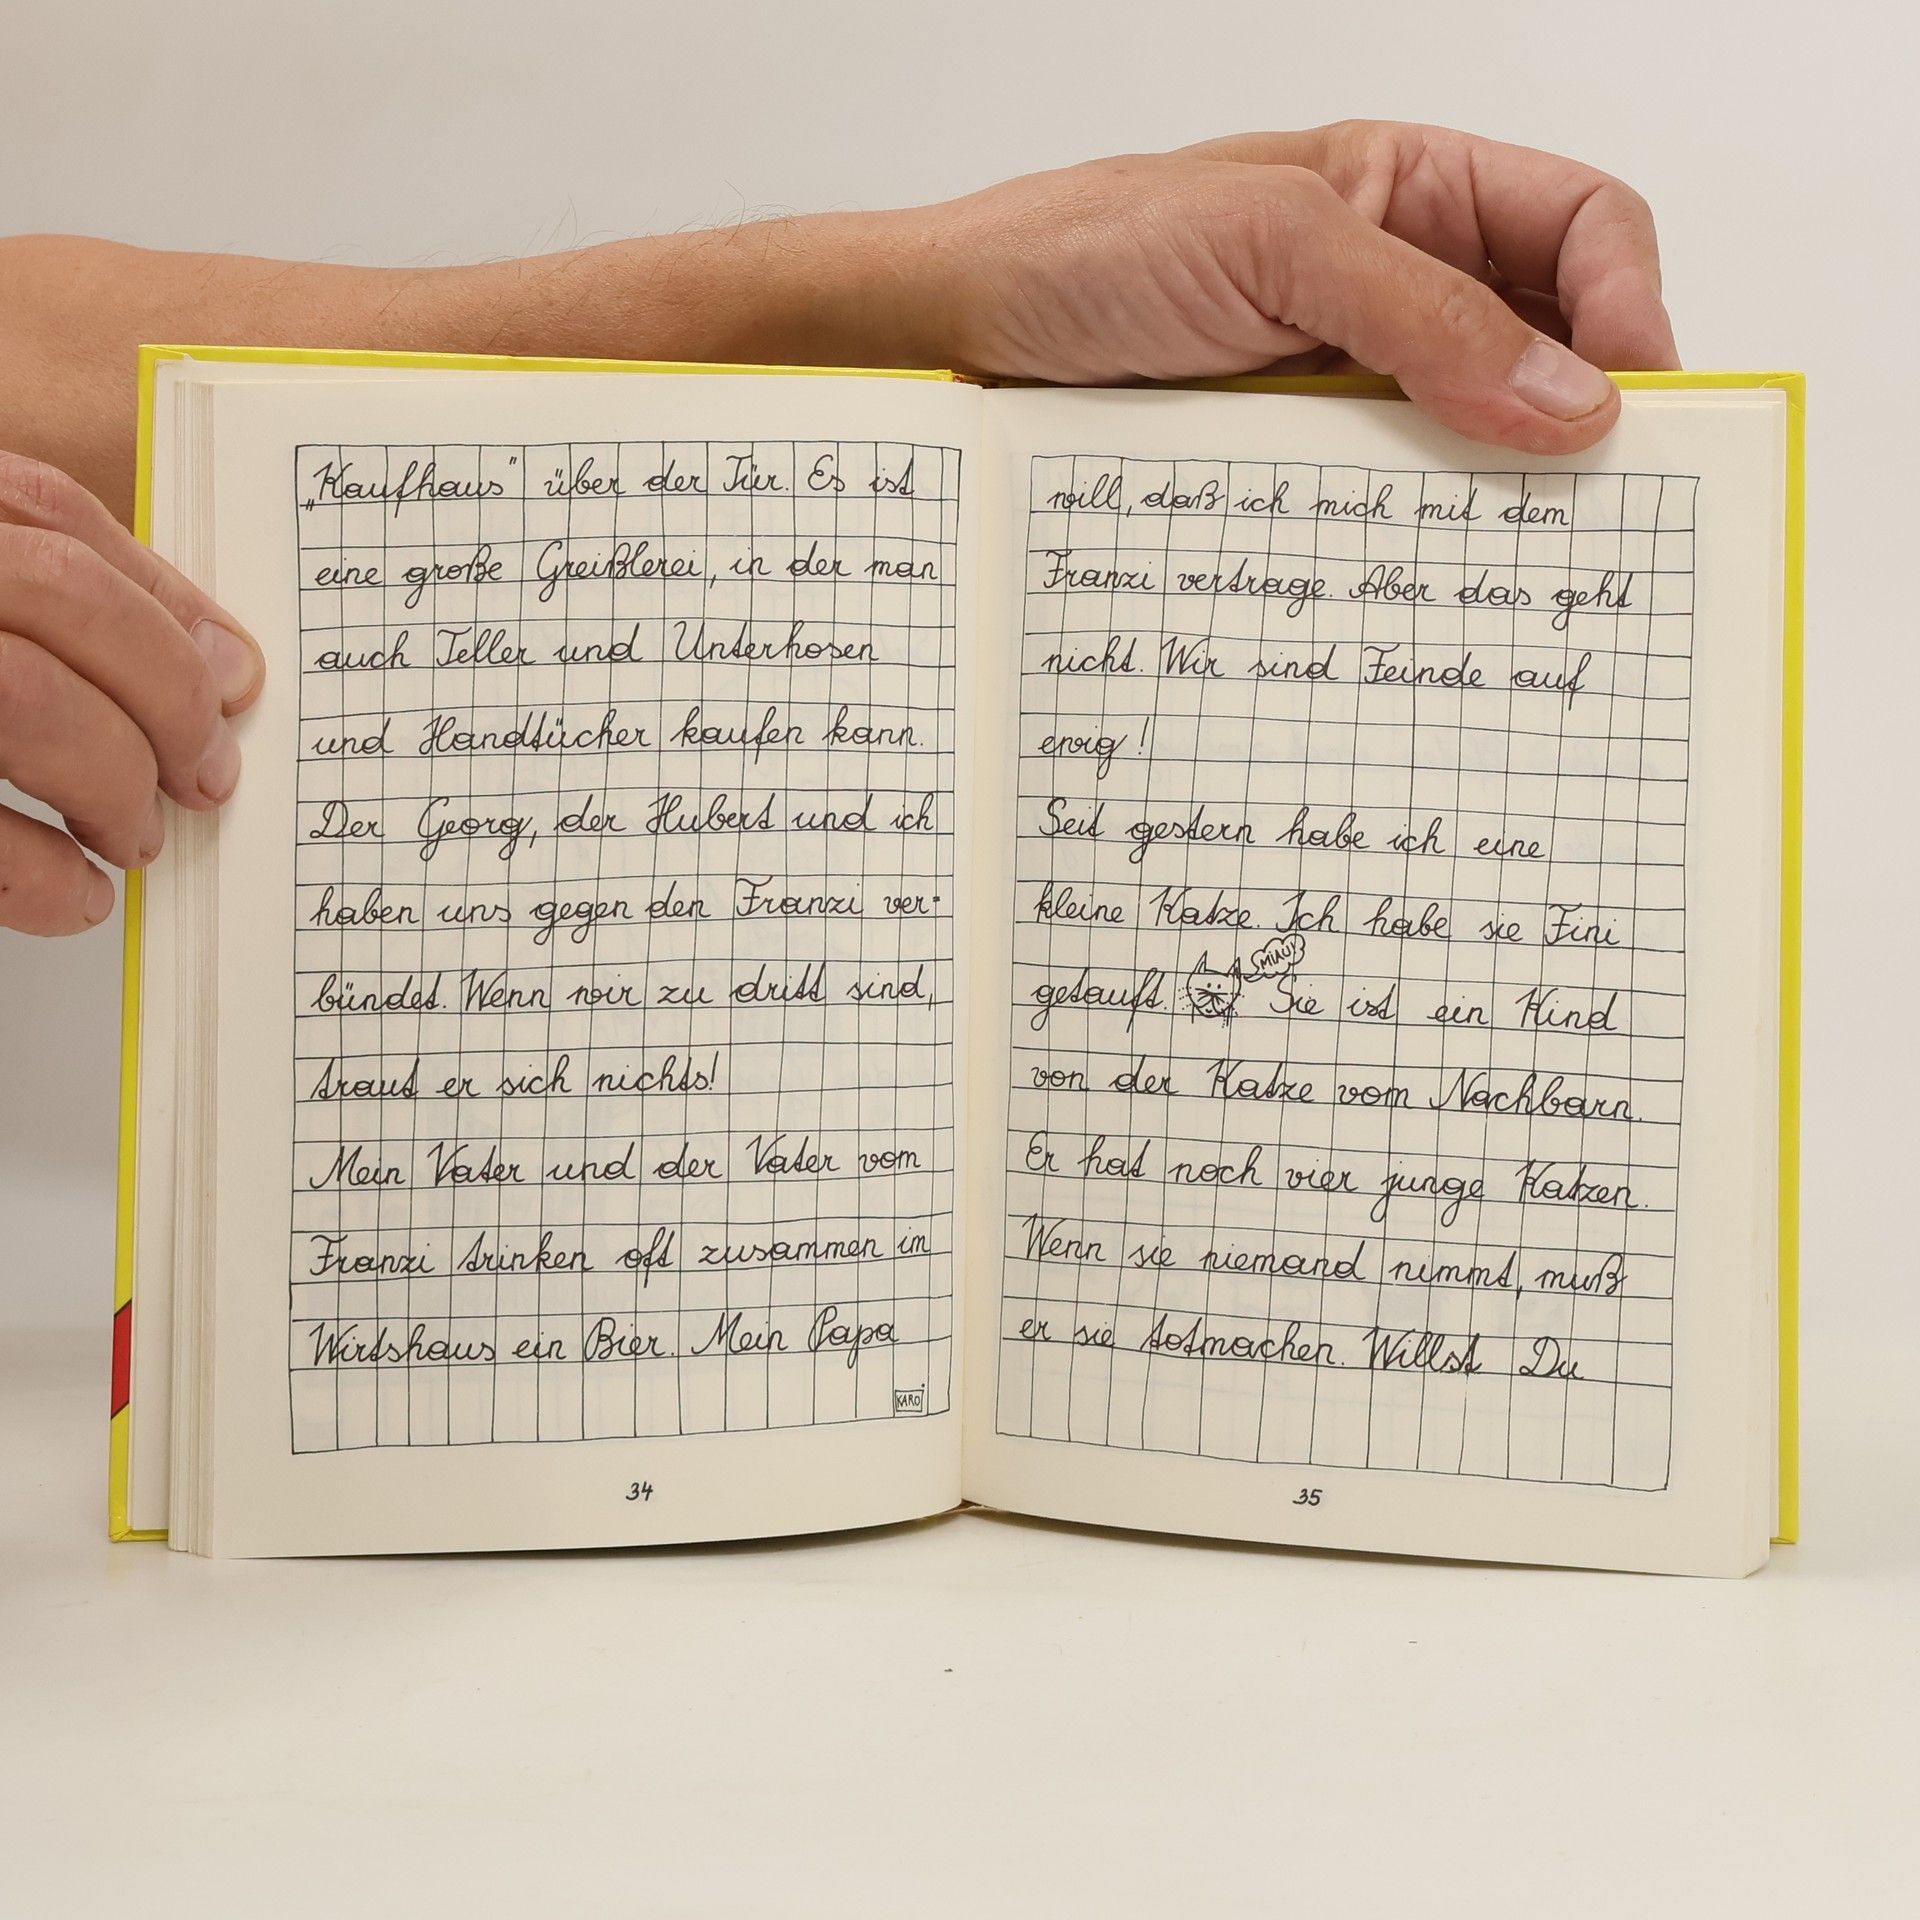 „Kaufhaus" über der Tür. Es ist
eine große Greißlerei, in der man
auch Teller und Unterhosen
und Handtücher kaufen kann.
Der Georg, der Hubert und ich
haben uns gegen den Franzi ver-
bündet. Wenn wir zu dritt sind,
traut er sich nichts!
Mein Vater und der Vater vom
Franzi trinken oft zusammen im
Wirtshaus ein Bier. Mein Papa
KARO
34
will, daß ich mich mit dem
Franzi vertrage. Aber das geht
nicht. Wir sind Feinde auf
ewig!
Seit gestern habe ich eine
kleine Katze. Ich habe sie Fini
MIAU!
getauft. Sie ist ein Kind
von der Katze vom Nachbarn.
Er hat noch vier junge Katzen.
Wenn sie niemand nimmt, muß
er sie totmachen. Willst Du
35